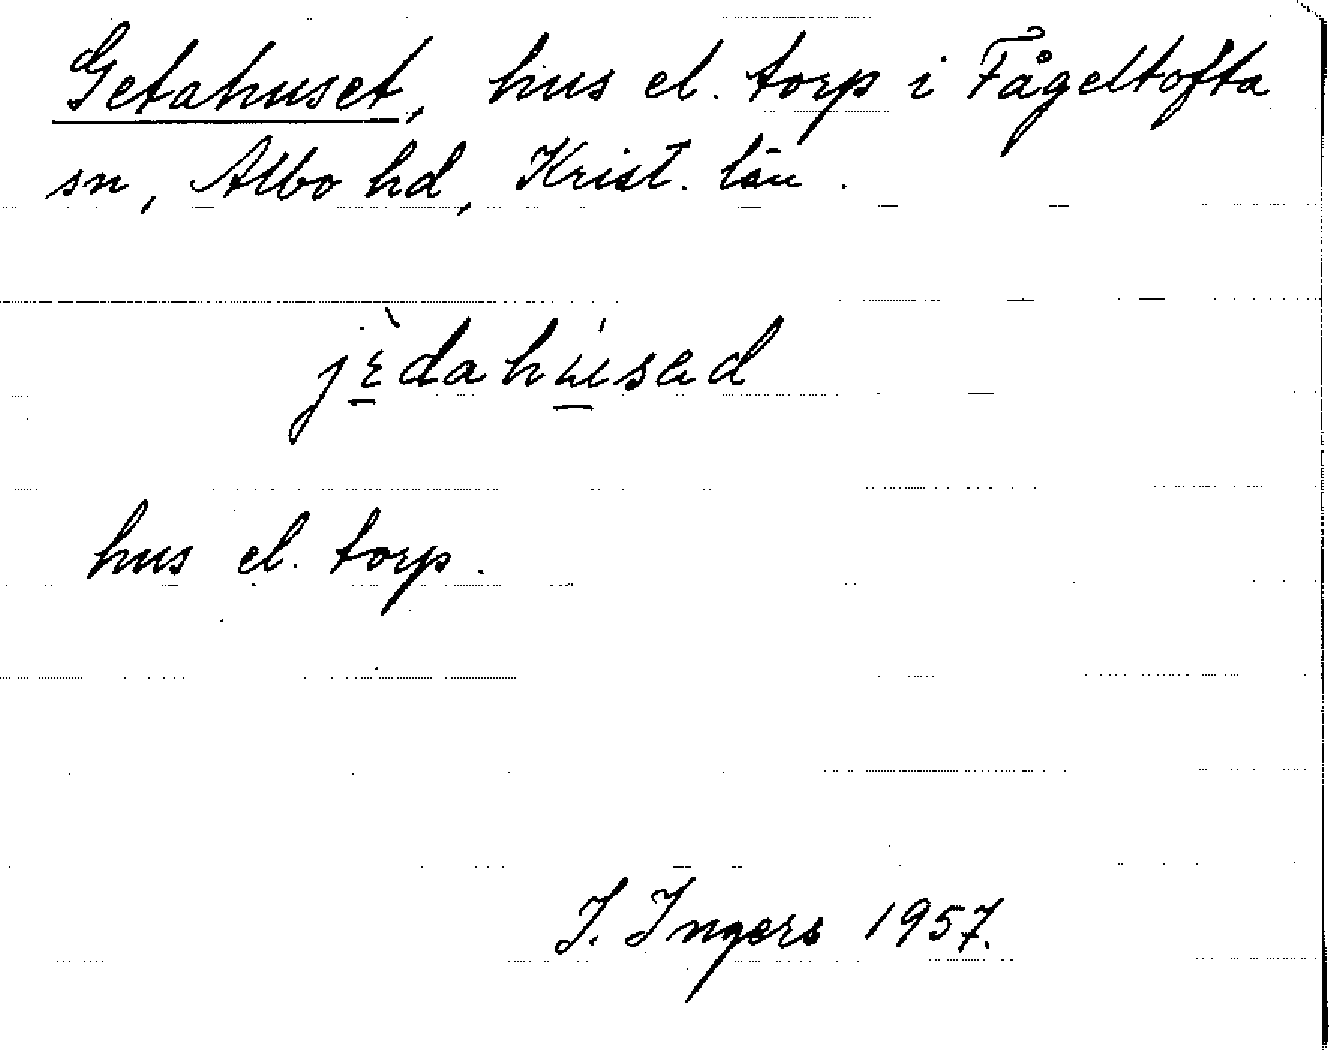 Getahuset, hus el. torp i Fågeltofta
sn, Albo hd, Krist. län.
jɛ̀dahúsad
hus el. torp.
I. Ingers 1957.